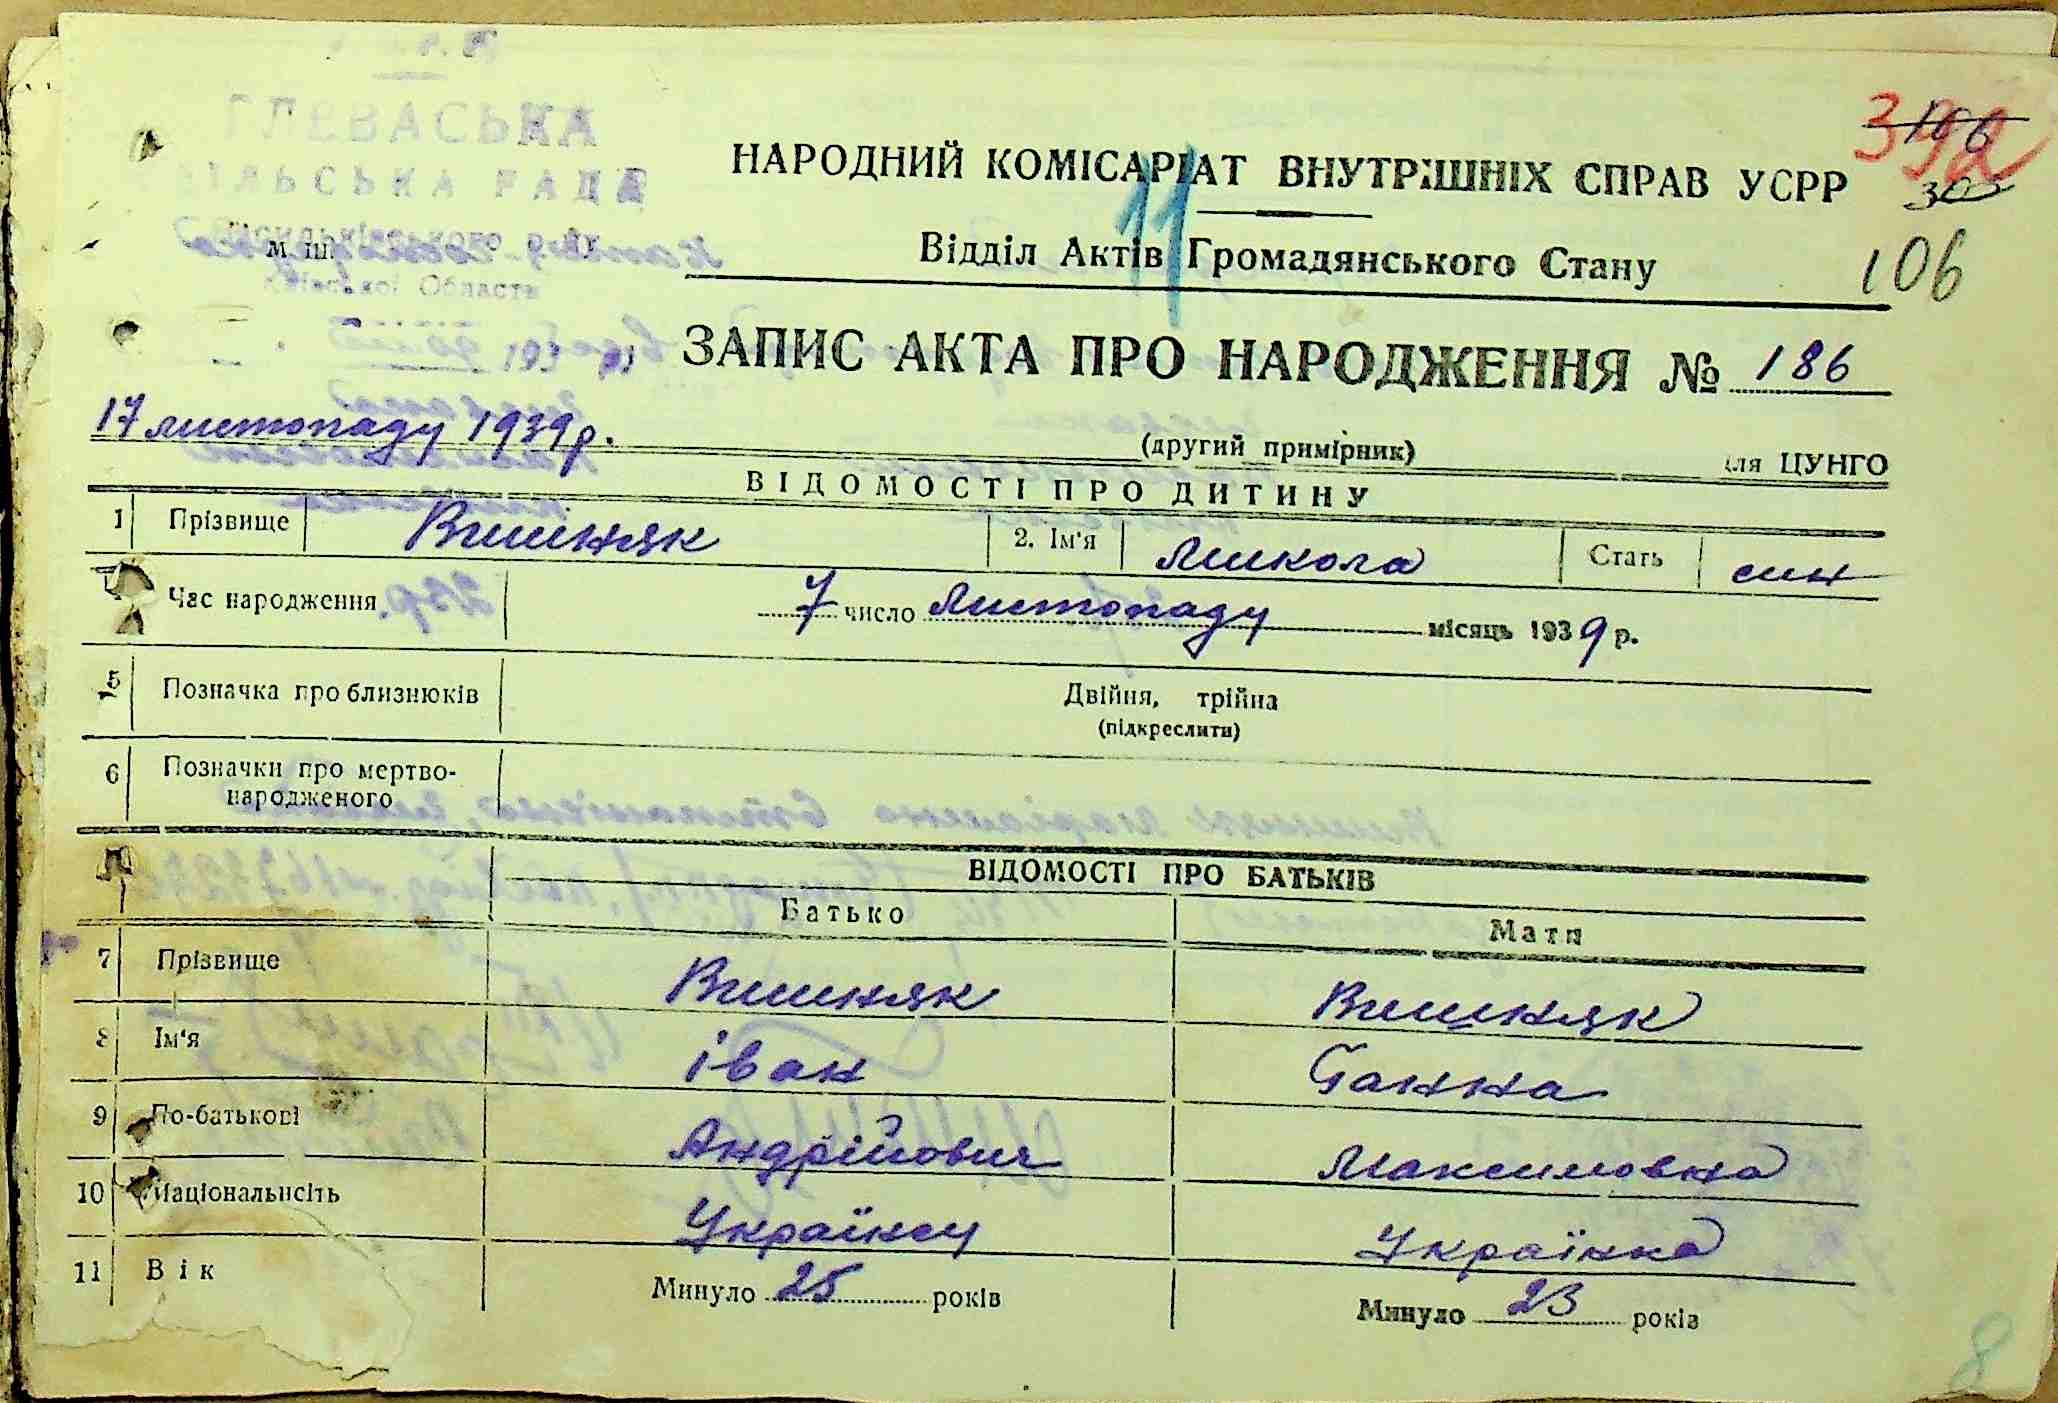 ГЛЕВАСЬКА
СІЛЬСЬКА РАДА
Київської Області
392
106
НАРОДНИЙ КОМІСАРІАТ ВНУТРІШНІХ СПРАВ УСРР
11
Відділ Актів Громадянського Стану
106
ЗАПИС АКТА ПРО НАРОДЖЕННЯ № 186
17 листопаду 1939р.
(другий примірник) для ЦУНГО
ВІДОМОСТІ ПРО ДИТИНУ
1 Прізвище Вишняк 2. Ім'я Микола Стать син
Час народження 7 число Листопаду місяць 1939 р.
5 Позначка про близнюків Двійня, трійна
(підкреслити)
6 Позначки про мертво-
народженого
ВІДОМОСТІ ПРО БАТЬКІВ
Батько Мати
7 Прізвище Вишняк Вишняк
8 Ім'я Іван Ганна
9 По-батькові Андрійович Максимовна
10 Національність Українец Українка
11 Вік Минуло 25 років Минуло 23 років
8